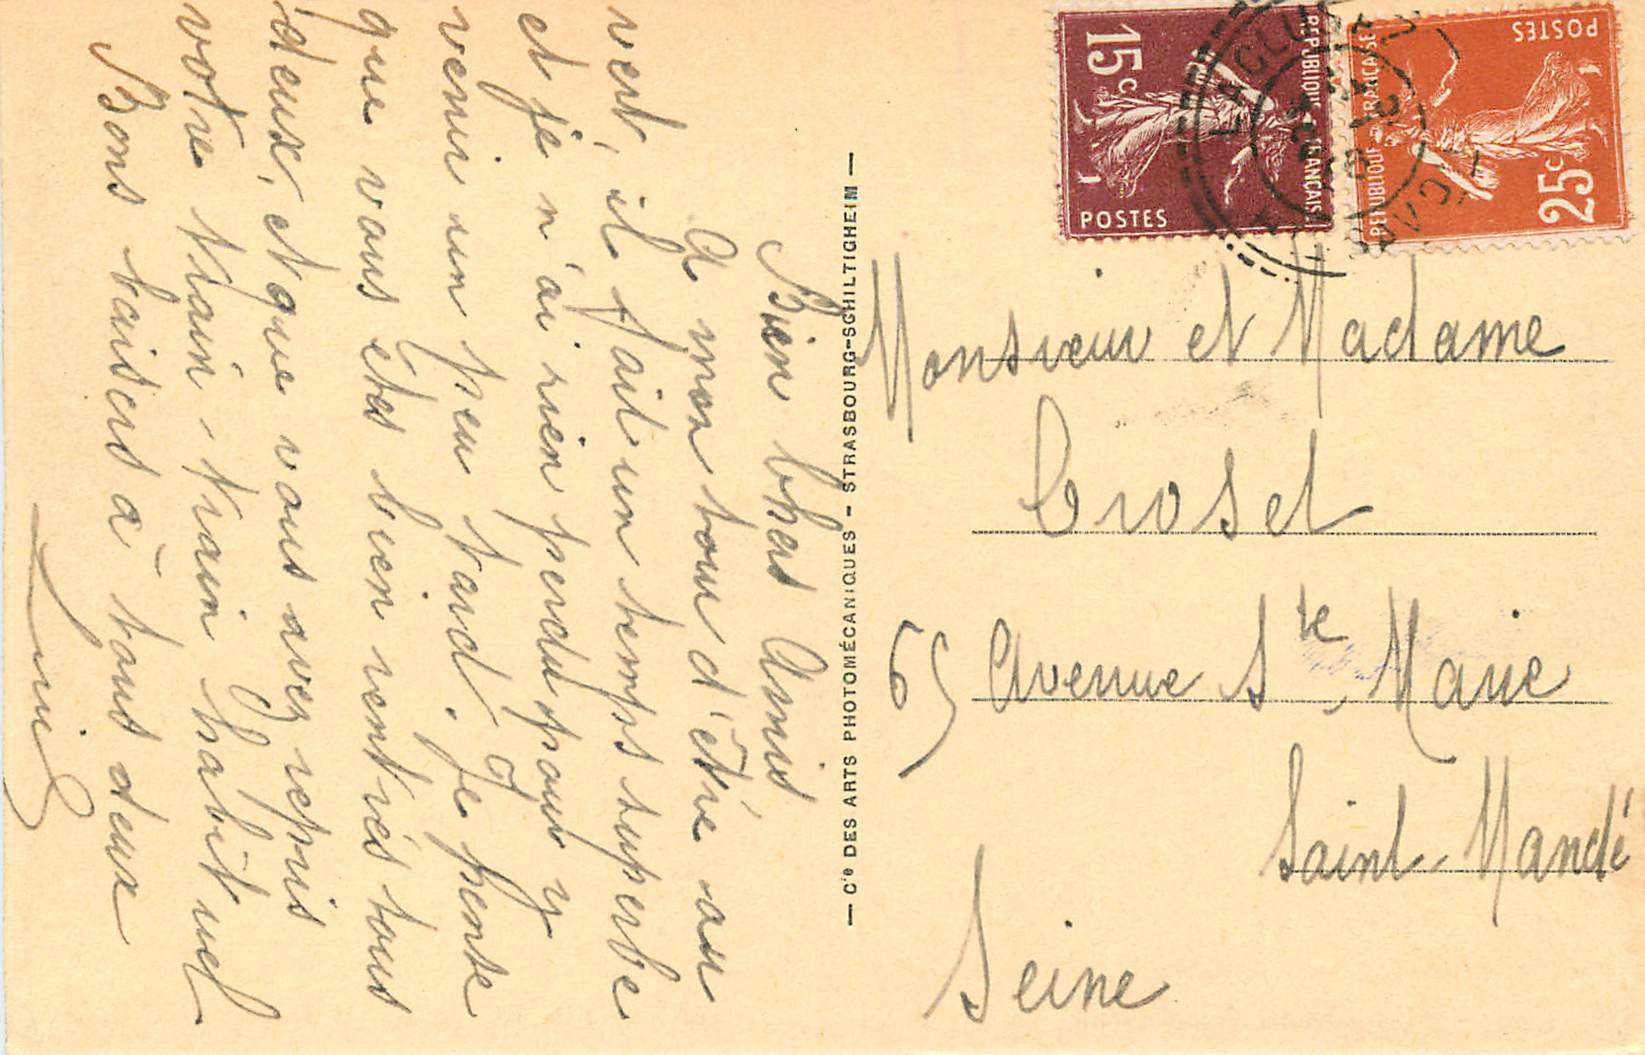 Bien chers Amis
A mon tour d'être au
vert, il fait un temps superbe
et je n'ai rien perdu pour y
venir un peu tard. Je pense
que vous êtes bien rentrés tous
deux, et que vous avez repris
votre train-train habituel
Bons baisers à tous deux
— Cie DES ARTS PHOTOMÉCANIQUES - STRASBOURG-SCHILTIGHEIM —
15c
RÉPUBLIQUE FRANÇAISE
POSTES
POSTES
RÉPUBLIQUE FRANÇAISE
25c
LA CLUSAZ
Monsieur et Madame
Croset
65 Avenue Ste Marie
Saint-Mandé
Seine